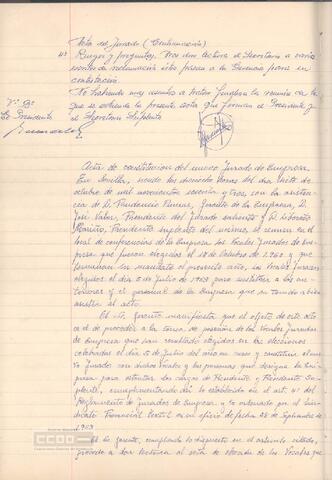 Acta del Jurado (Continuación)
4º Ruegos y preguntas. Tras dar lectura el Secretario a varios
escritos de reclamación éste pasan a la Gerencia para su
contestación.
No habiendo más asuntos a tratar finaliza la reunión de la
que se extiende la presente acta que firman el Presidente y
el Secretario Suplente
Vº Bº
El Presidente
Acta de constitución del nuevo Jurado de Empresa.
En Sevilla, siendo las dieciocho horas del día siete de
octubre de mil novecientos sesenta y tres, con la asisten-
cia de D. Prudencio Pumar, Gerente de la Empresa, D.
José Valero, Presidente del Jurado saliente y D. Liborato
Mariño, Presidente suplente del mismo, se reunen en el
local de conferencias de la Empresa los Vocales Jurados de Em-
presa que fueron elegidos el 18 de Octubre de 1960 y que
terminan su mandato el presente año, los Vocales Jurados
elegidos el 5 de Julio de 1963 para sustituir a los an-
teriores y el personal de la Empresa que ha tenido a bien
asistir al acto.
El Sr. Gerente manifiesta que el objeto de este acto
es el de proceder a la toma de posesión de los Vocales Jurados
de Empresa que han resultado elegidos en las elecciones
celebradas el día 5 de Julio del año en curso y constituir el nue-
vo Jurado con dichos Vocales y las personas que designe la Em-
presa para ostentar los cargos de Presidente y Presidente Su-
plente, cumplimentando así lo establecido en el art. nº del
Reglamento de Jurados de Empresa y lo ordenado por el Sindi-
cato Provincial Textil en su oficio de fecha 28 de Septiembre de
1963
El Sr. Gerente, cumpliendo lo dispuesto en el artículo citado,
procede a dar lectura al acta de elección de los Vocales que
CCOO